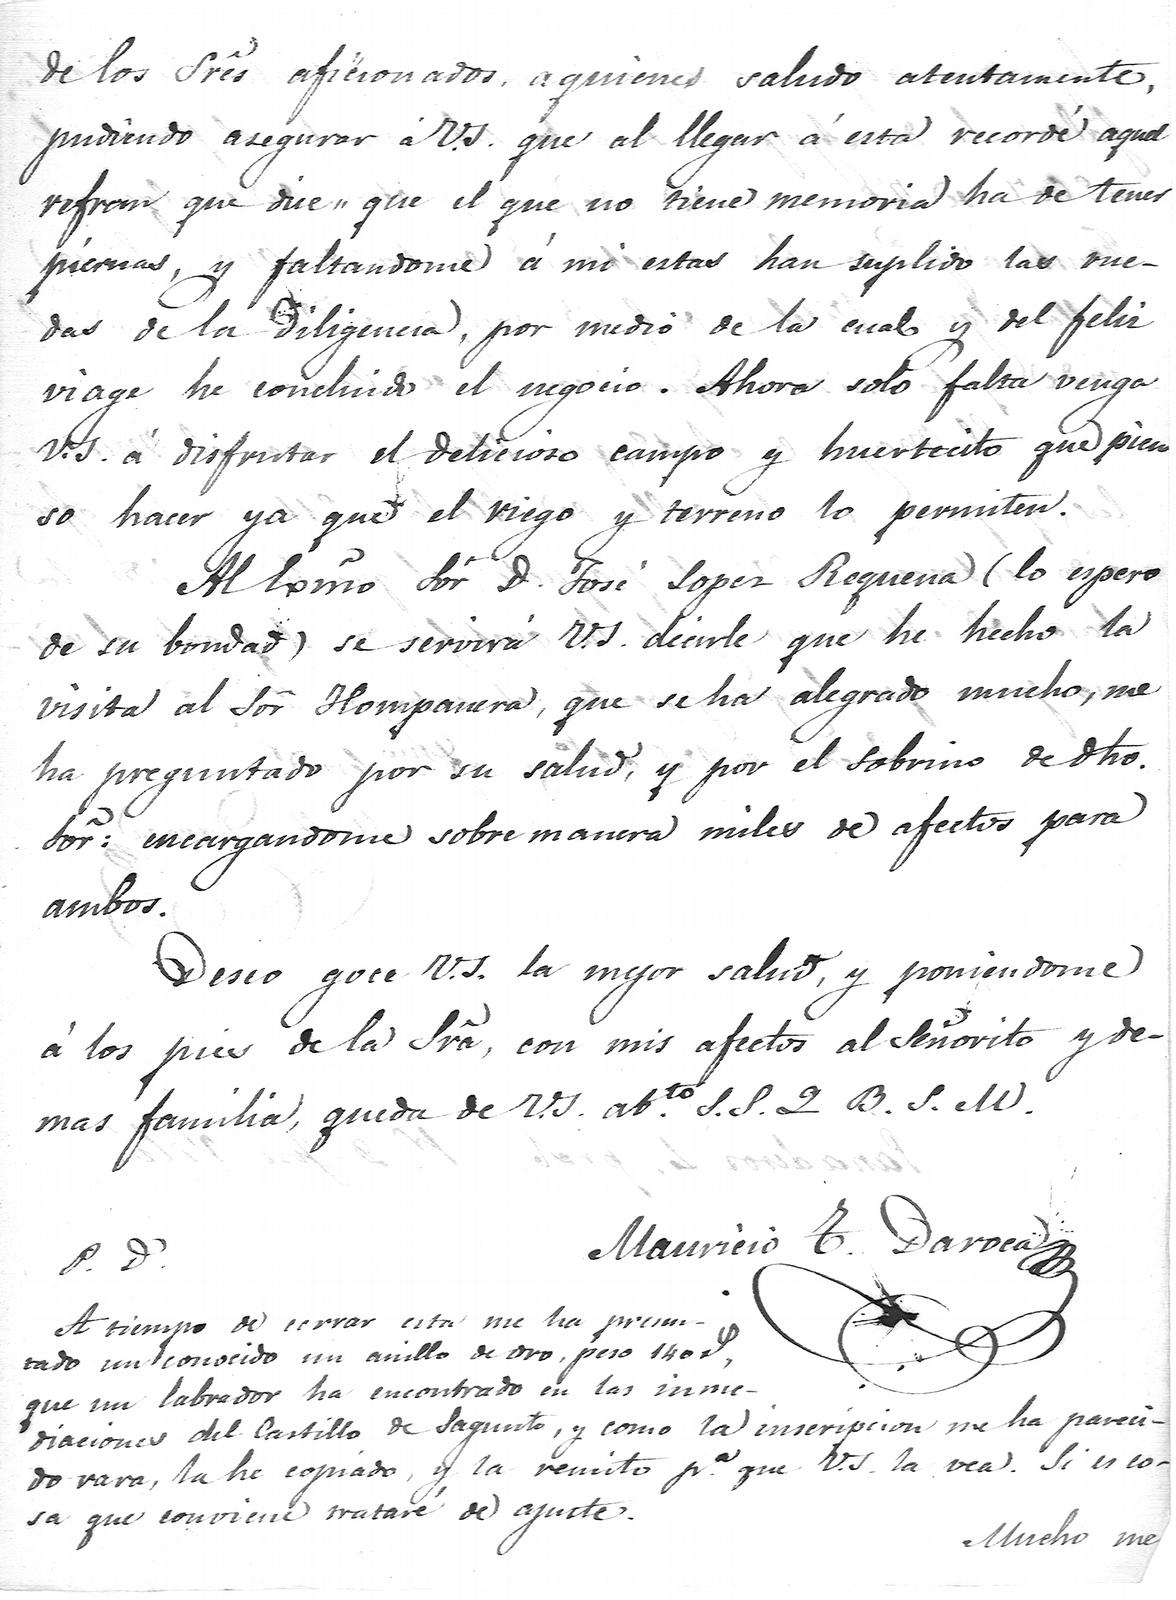 de los Srẽs aficionados, a quienes saludo atentamente,
pudiendo asegurar á V.S. que al llegar á esta recordé aquel
refran que dice,, que el que no tiene memoria ha de tener
piernas, y faltandome á mi estas han suplido las rue-
das de la Diligencia, por medio de la cual y del feliz
viage he concluido el negocio. Ahora solo falta venga
V.S. á disfrutar el delicioso campo y huertecito que pien
so hacer ya que el riego y terreno lo permiten.
Al Exmo Sor̃ D. José Lopez Requena (lo espero
de su bondad) se servirá V.S. decirle que he hecho la
visita al Sor̃ Hompanera, que se ha alegrado mucho, me
ha preguntado por su salud, y por el sobrino de dho.
Sor̃: encargandome sobre manera miles de afectos para
ambos.
Deseo goce V.S. la mejor salud, y poniendome
á los pies de la Srã, con mis afectos al Señorito y de-
mas familia, queda de V.S. ab.to S.S. Q B. S. M.
Mauricio T. Daroca
P. D.
A tiempo de cerrar esta me ha presen-
tado un conocido un anillo de oro, peso 140
que un labrador ha encontrado en las inme-
diaciones del Castillo de Sagunto, y como la inscripcion me ha pareci-
do rara, la he copiado, y la remito p.a que V.S. la vea. Si es co-
sa que conviene trataré de ajuste.
Mucho me